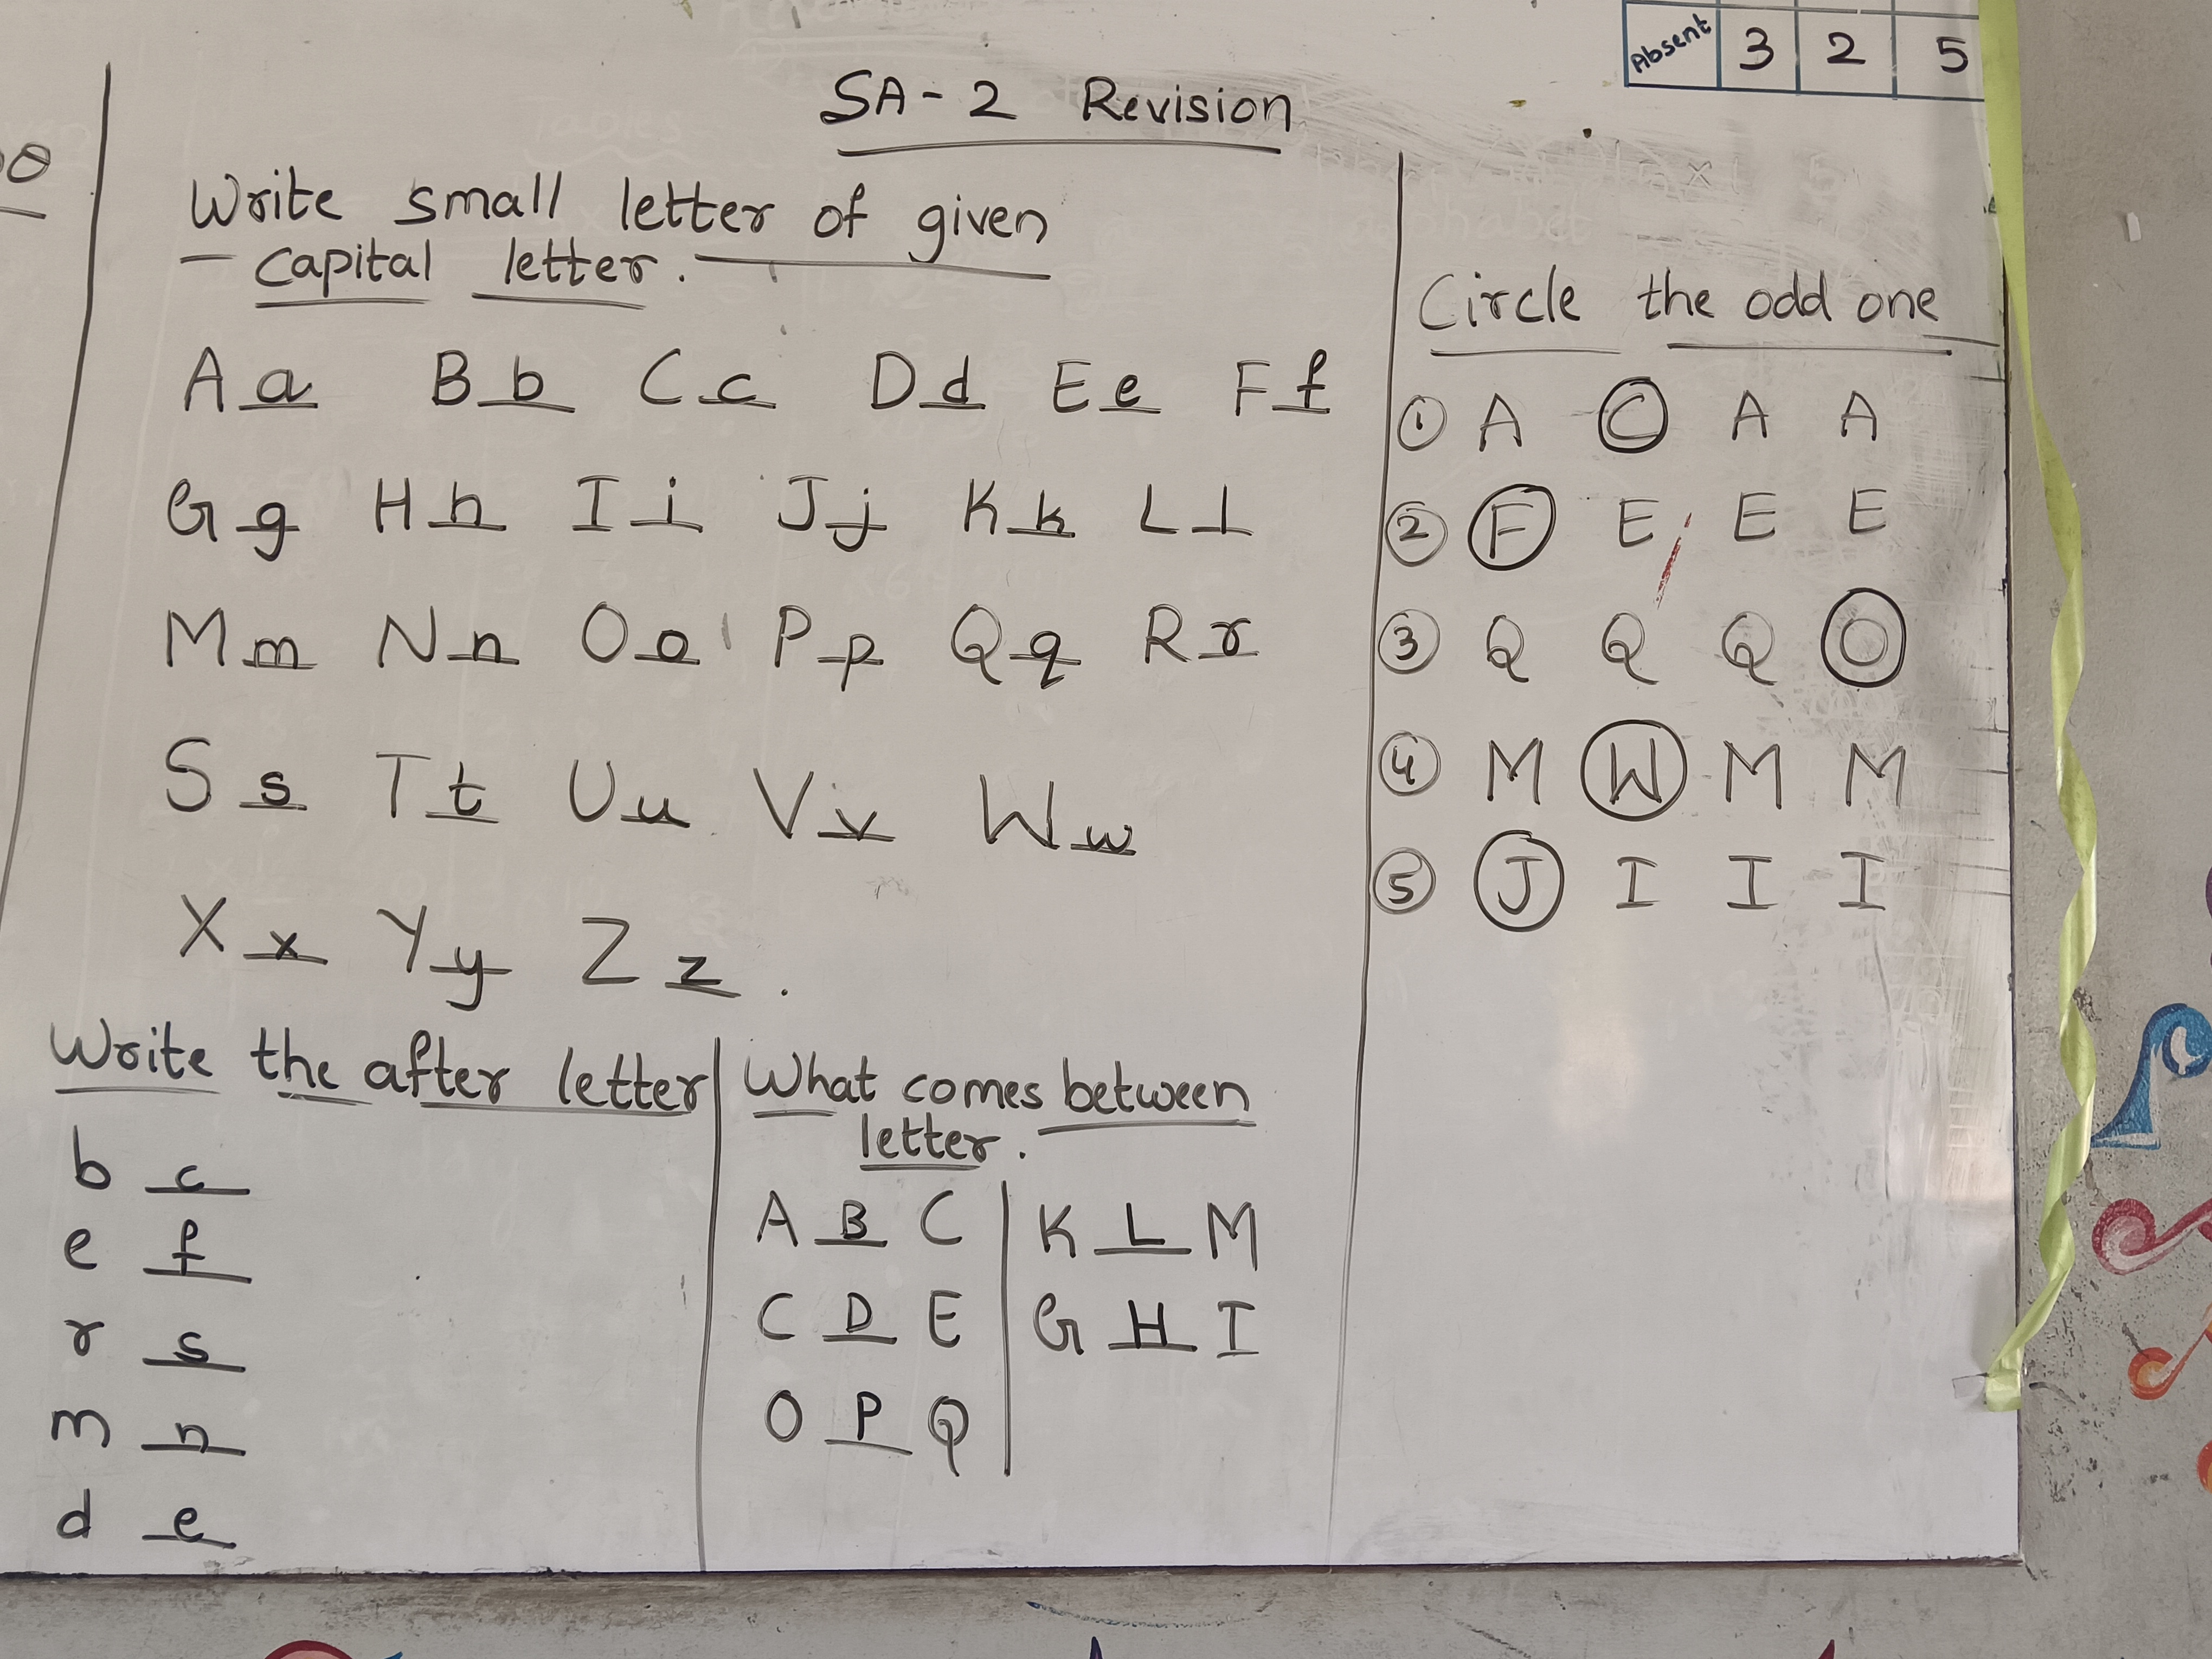 Absent 3 2 5
SA-2 Revision
Write small letter of given
capital letter.
A a B b C c D d E e F f
G g H h I i J j K k L l
M m N n O o P p Q q R r
S s T t U u V v W w
X x Y y Z z.
Circle the odd one
① A C A A
② F E E E
③ Q Q Q O
④ M W M M
⑤ J I I I
Write the after letter
b c
e f
r s
m n
d e
What comes between
letter.
A B C
C D E
O P Q
K L M
G H I